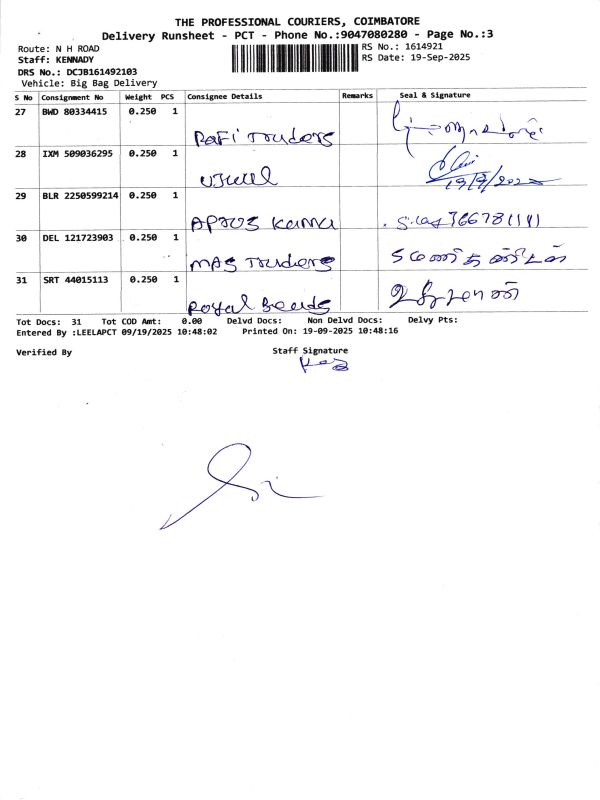 THE PROFESSIONAL COURIERS, COIMBATORE
Delivery Runsheet - PCT - Phone No.:9047080280 - Page No.:3
Route: N H ROAD RS No.: 1614921
Staff: KENNADY RS Date: 19-Sep-2025
DRS No.: DCJB161492103
Vehicle: Big Bag Delivery
S No Consignment No Weight PCS Consignee Details Remarks Seal & Signature
27 BWD 80334415 0.250 1
Rafi Traders
28 IXM 509036295 0.250 1
19/9/2025
29 BLR 2250599214 0.250 1
30 DEL 121723903 0.250 1
MAS Traders
31 SRT 44015113 0.250 1
Royal Beads
Tot Docs: 31 Tot COD Amt: 0.00 Delvd Docs: Non Delvd Docs: Delvy Pts:
Entered By :LEELAPCT 09/19/2025 10:48:02 Printed On: 19-09-2025 10:48:16
Verified By Staff Signature